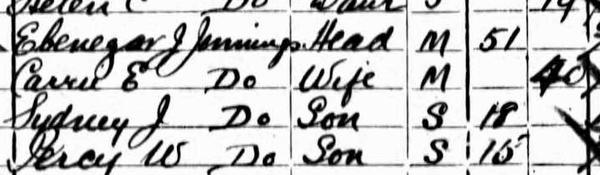 Helen C Do Daur S 19
Ebenezar J Jennings Head M 51
Carrie E Do Wife M 40
Sydney J Do Son S 18
Percy W Do Son S 15